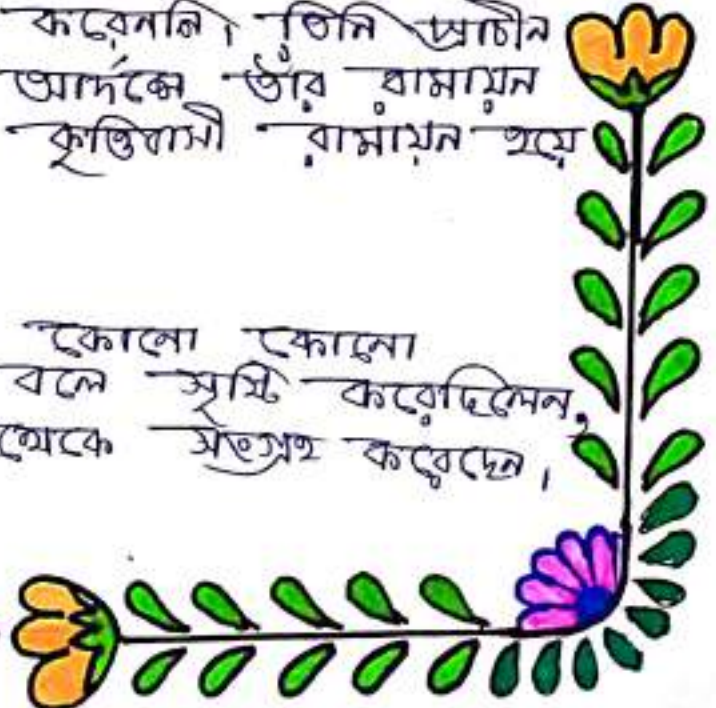 করেননি। তিনি প্রাচীন
আর্দশে তাঁর রামায়ন
কৃত্তিবাসী রামায়ন হয়ে
কোনো কোনো
বলে সৃষ্টি করেছিলেন,
থেকে সংগ্রহ করেছেন।